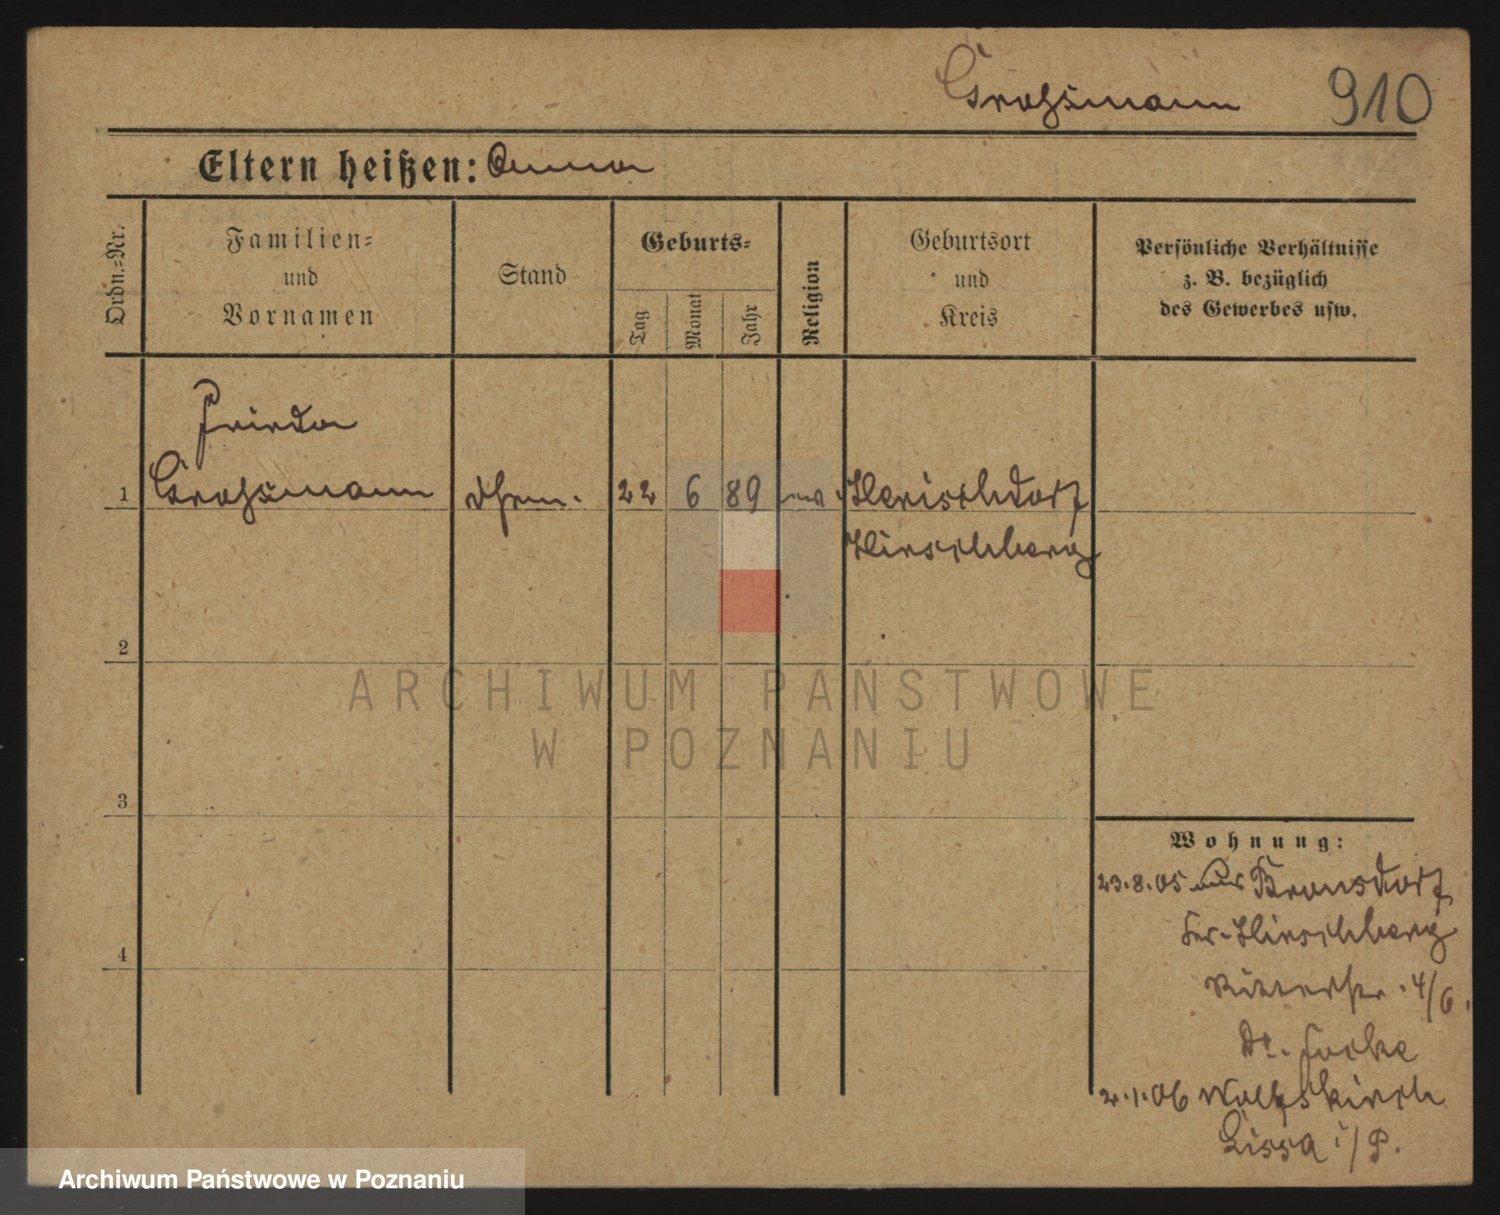 Großmann 910
Eltern heißen: Anna
Ordn.-Nr.
Familien-
und
Vornamen
Stand
Geburts-
Tag
Monat
Jahr
Religion
Geburtsort
und
Kreis
Persönliche Verhältnisse
z. B. bezüglich
des Gewerbes usw.
Frieda
1 Großmann 22 6 89 Herischdorf
Hirschberg
2
3
4
Wohnung:
23.8.05 aus
Kr. Hirschberg
Ritterstr. 4/6.
Dr.
2.1.06 Wolfskirch
Lissa i/P.
ARCHIWUM PAŃSTWOWE
W POZNANIU
Archiwum Państwowe w Poznaniu